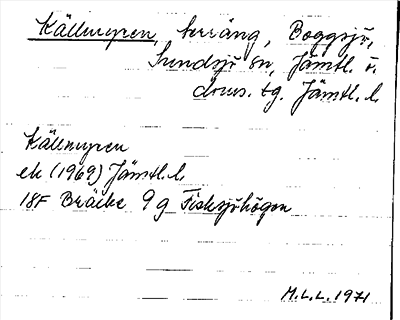 Källmyren, terräng, Boggsjö,
Sundsjö sn, Jämtl. ö.
doms. tg. Jämtl. l.
Källmyren
ek (1969) Jämtl. l.
18F Bräcke 9g Fisksjöhögen
M.L.L. 1971